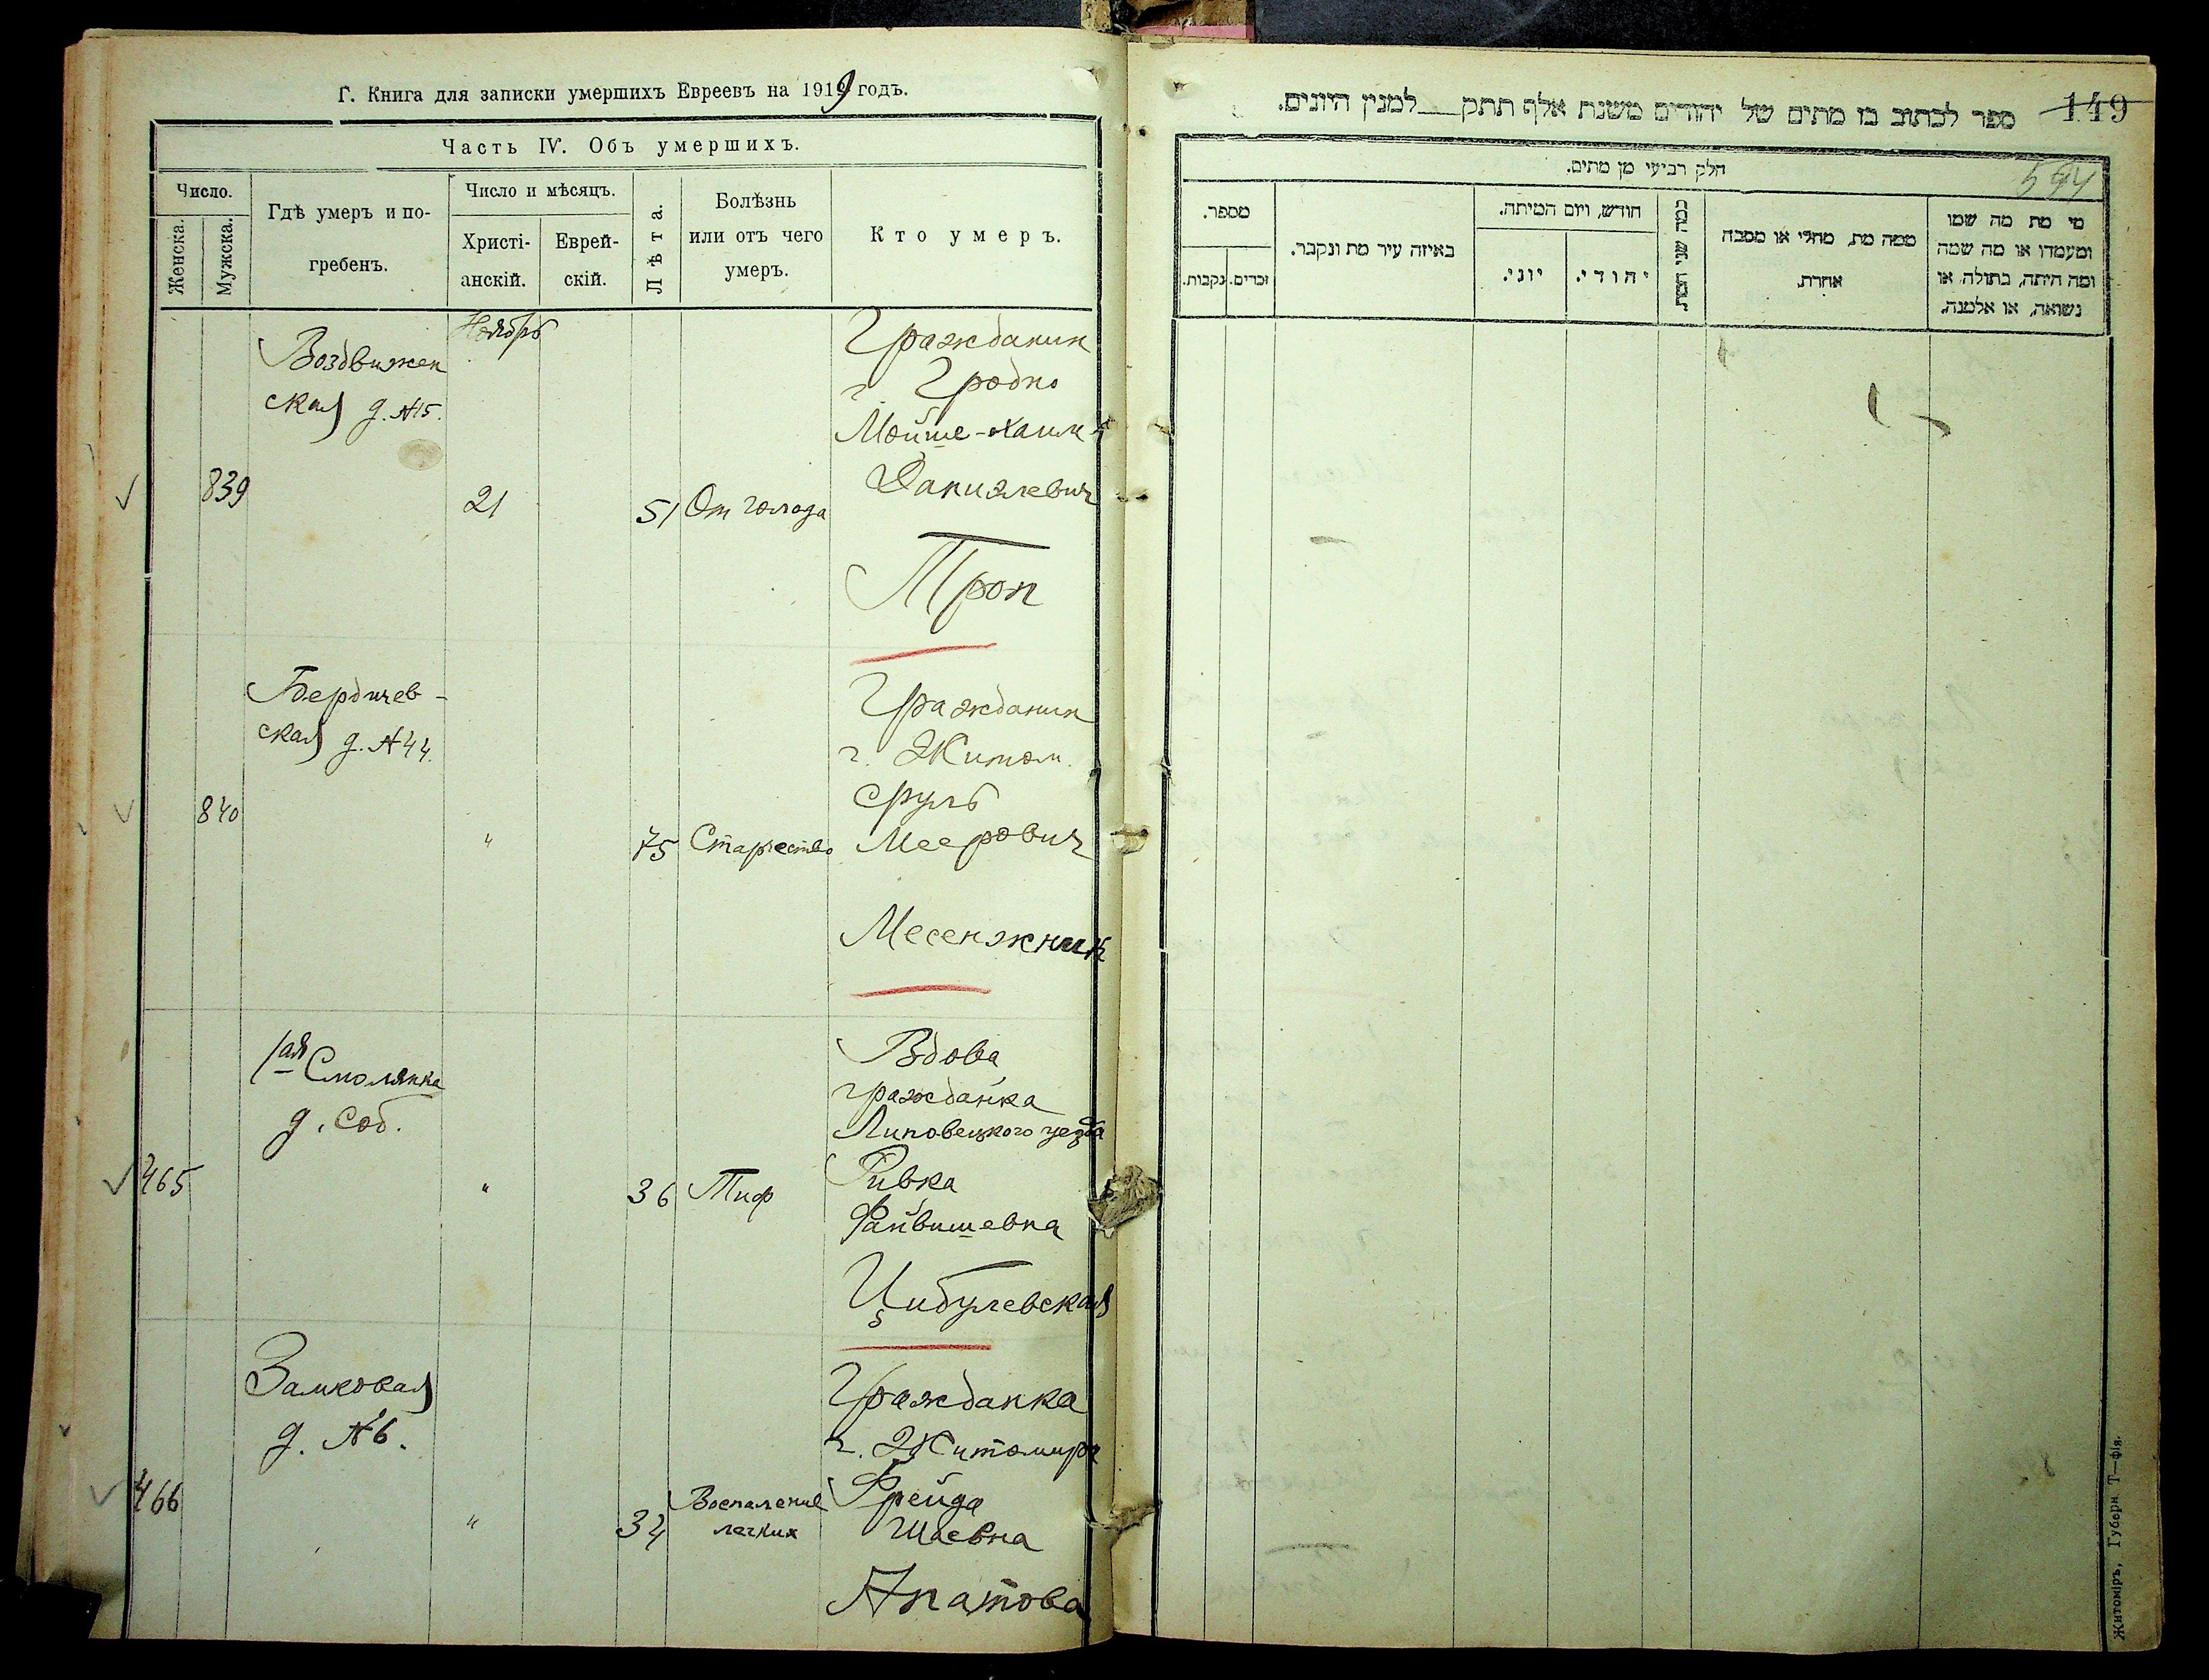 Г. Книга для записки умершихъ Евреевъ на 1919 годъ.
Часть IV. Объ умершихъ.
Число.
Женска.
Мужска.
Гдѣ умеръ и по-
гребенъ.
Число и мѣсяцъ.
Христі-
анскій.
Еврей-
скій.
Лѣта.
Болѣзнь
или отъ чего
умеръ.
Кто умеръ.
Ноябрь
839
Воздвижен
ская д. №15.
21
51
От голода
Гражданин
г. Гродно
Мойше-Хаим
Даниелевич
Троп
840
Бердичев-
ская д. №44.
"
75
Старчество
Гражданин
г. Житом.
Сруль
Меерович
Месенжник
465
1ая Смолянка
д. соб.
"
36
Тиф
Вдова
гражданка
Липовецкого уезда
Ривка
Файвишевна
Цибулевская
466
Замковая
д. №6.
"
34
Воспаление
легких
Гражданка
г. Житомира
Фрейда
Шаевна
Апатова
149
ספר לכתוב בו מתים של יהודים משנת אלף תתק___ למנין היונים.
חלק רביעי מן מתים.
מספר.
זכרים.
נקבות.
באיזה עיר מת ונקבר.
חודש, ויום המיתה.
יוני.
יהודי.
כמה שני המת.
ממה מת, מחלי או מסבה
אחרת.
מי מת מה שמו
ומעמדו או מה שמה
ומה היתה, בתולה או
נשואה, או אלמנה.
Житоміръ, Губерн. Т—фія.